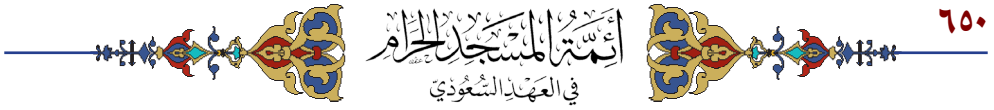 ٦٥٠
أَئِمَّةُ المَسْجِدِ الحَرَامِ
في العَهْدِ السُّعُودِيّ